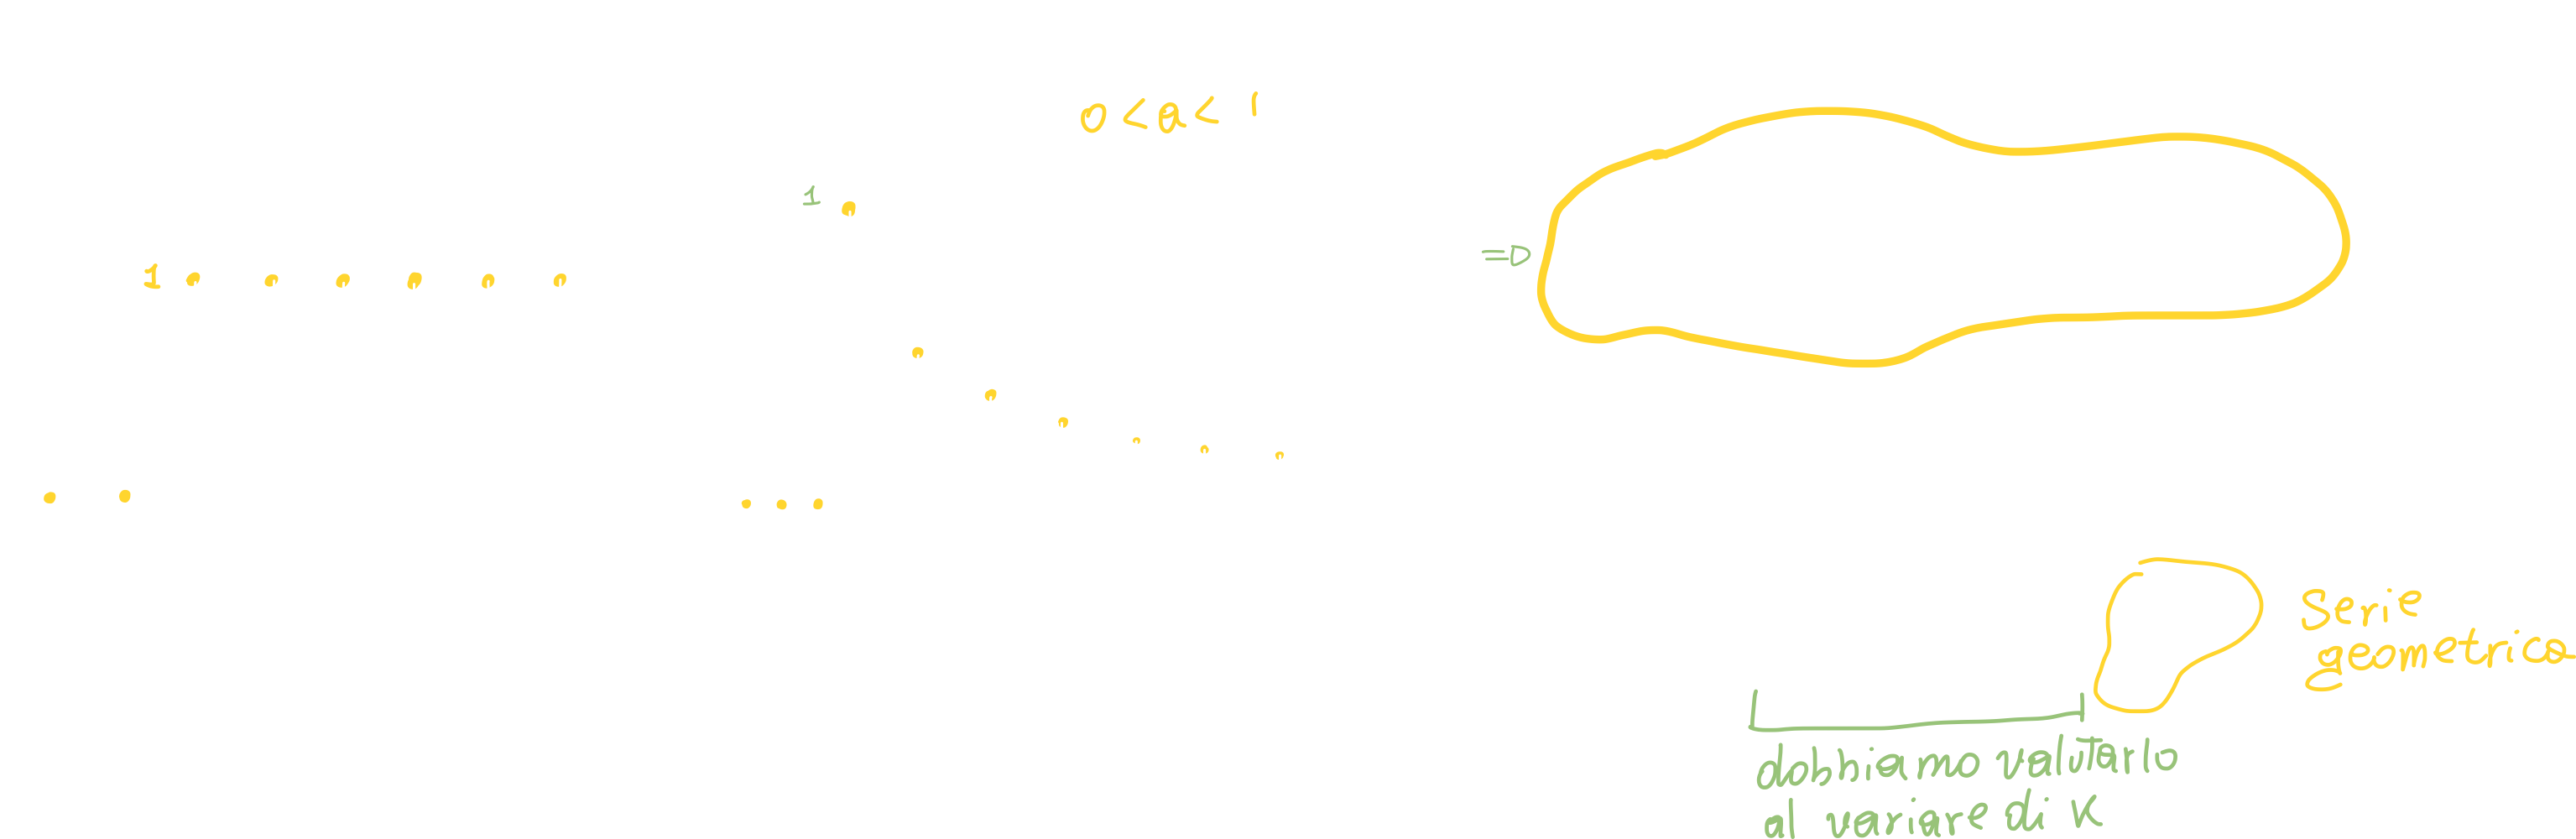 0 < a < 1
1
1
=D
Serie
geometrica
dobbiamo valutarlo
al variare di K